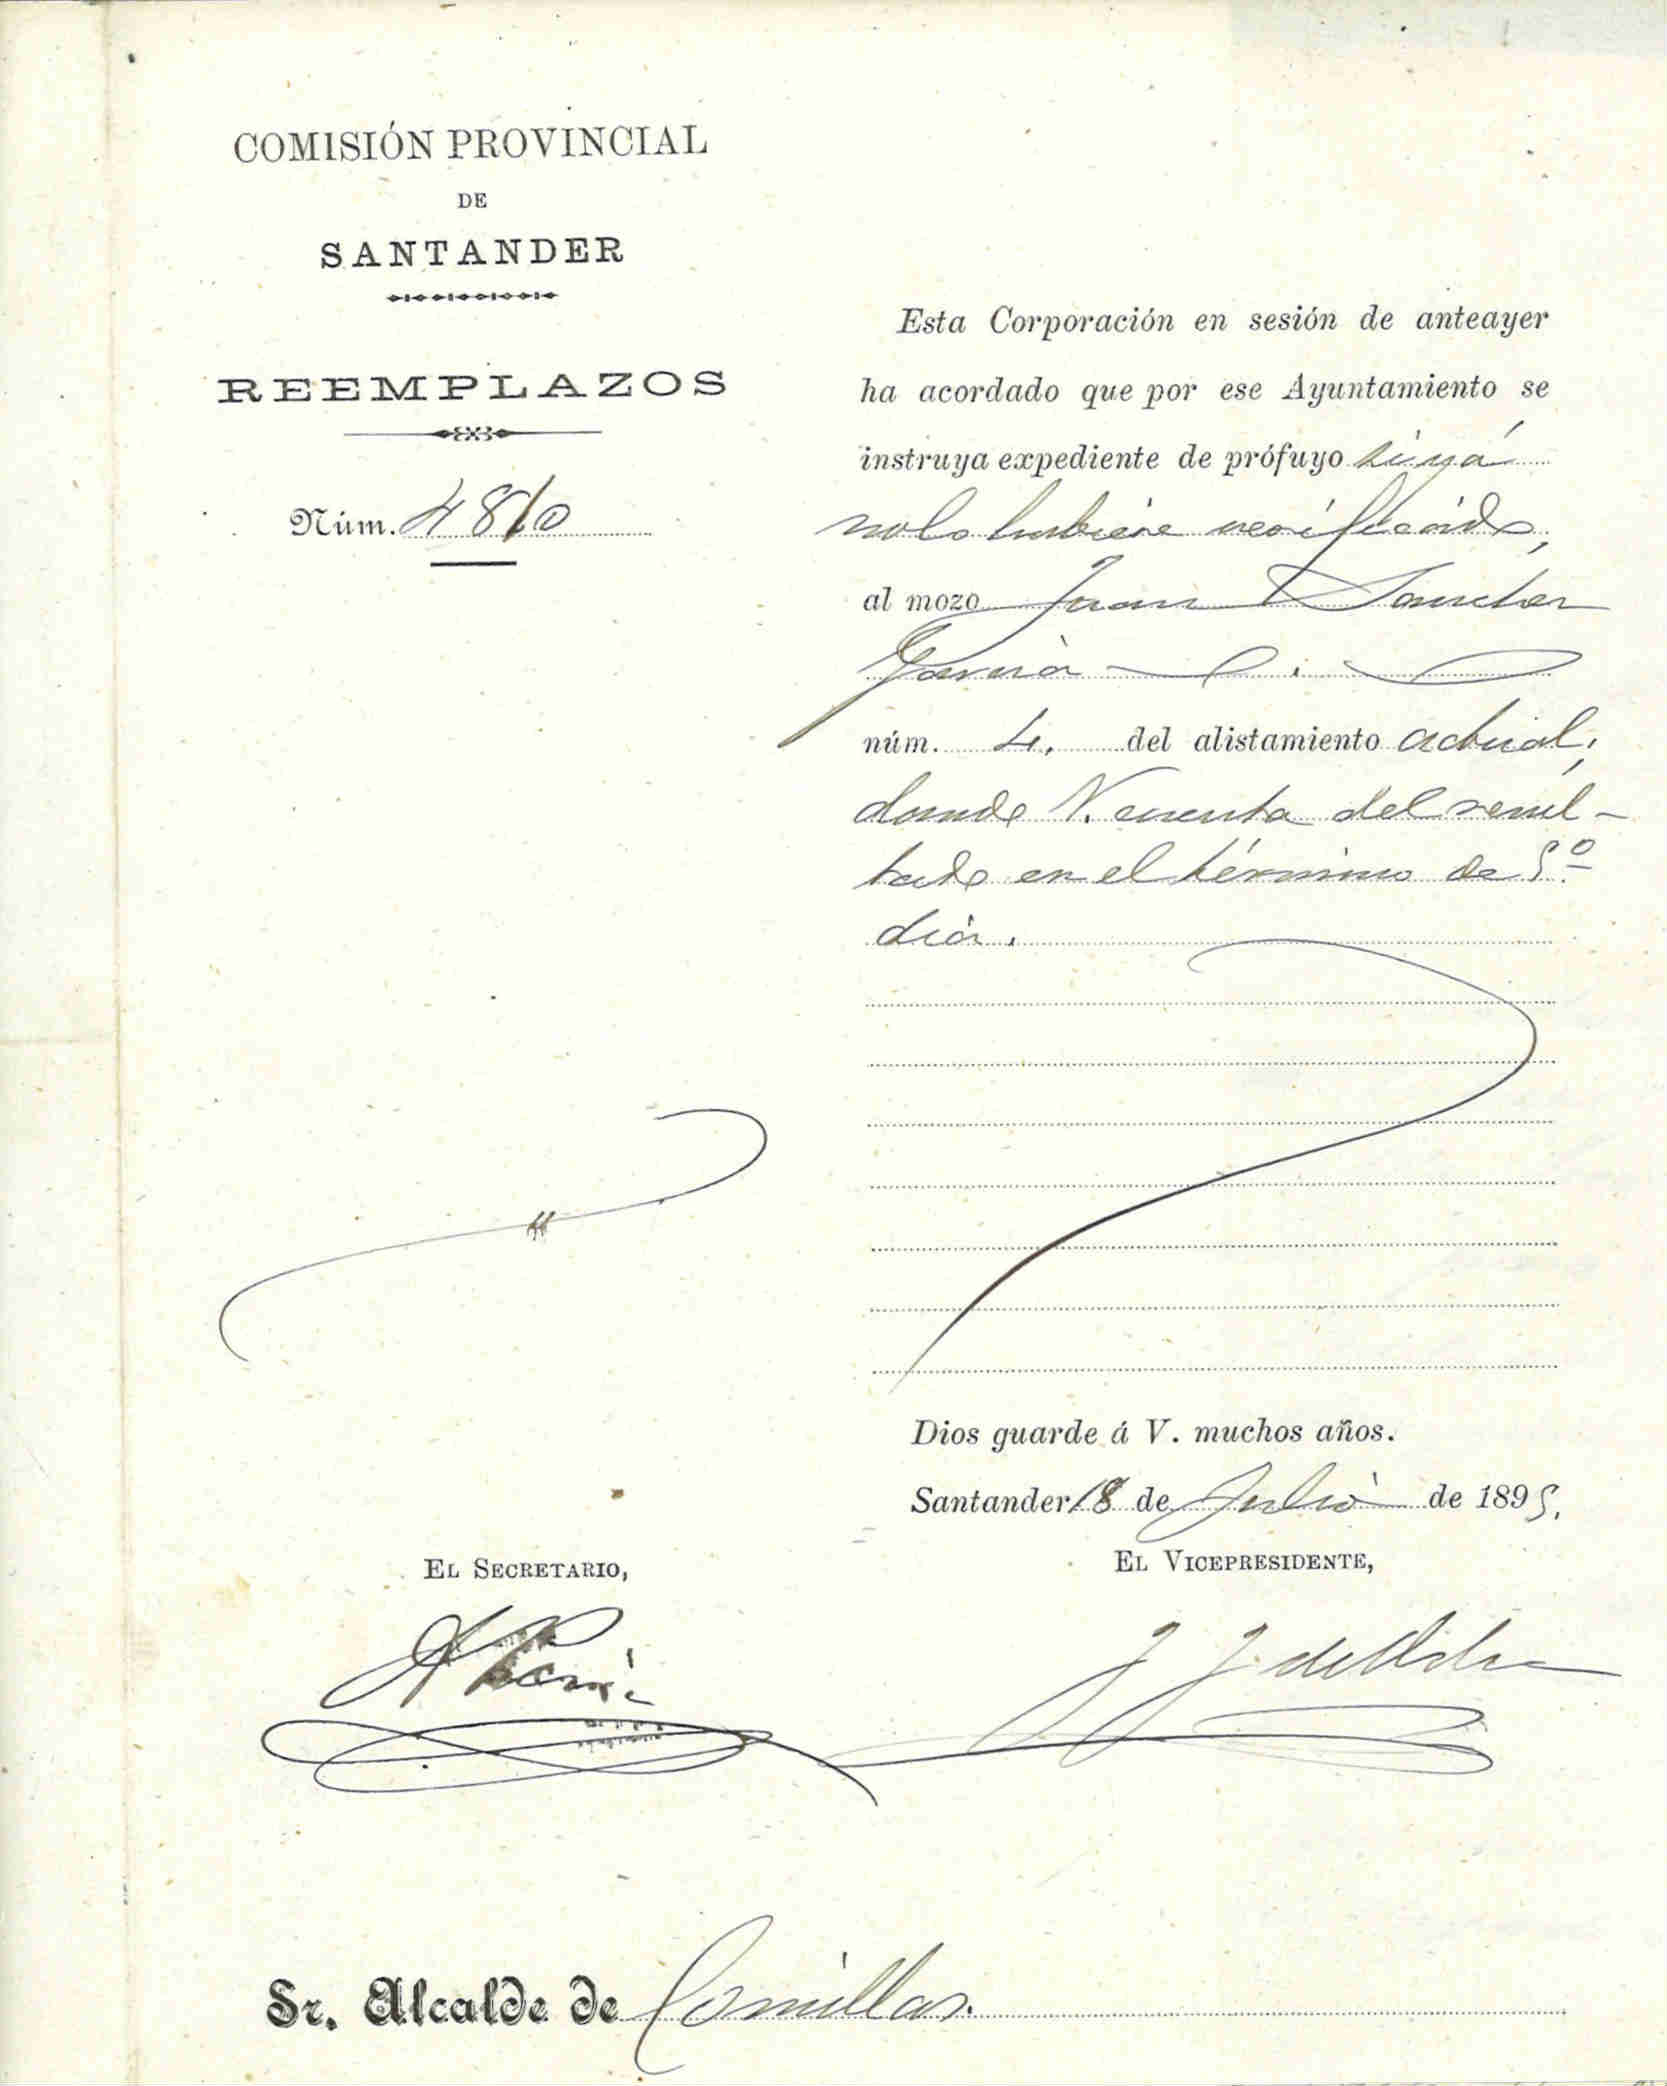 COMISIÓN PROVINCIAL
DE
SANTANDER
REEMPLAZOS
Núm. 4810
Esta Corporación en sesión de anteayer
ha acordado que por ese Ayuntamiento se
instruya expediente de prófuyo si yá
no lo hubiere verificado,
al mozo Juan Sanchez
García
núm. 4. del alistamiento actual,
dando V. cuenta del resul-
tado en el término de 5º
día.
Dios guarde á V. muchos años.
Santander 18 de Julio de 1895.
EL SECRETARIO,
EL VICEPRESIDENTE,
A
J. J. de
Sr. Alcalde de Comillas.